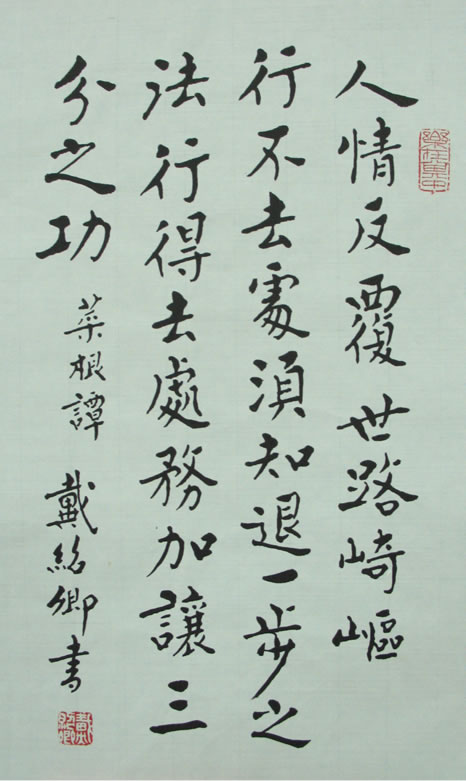 人情反覆世路崎嶇
行不去處須知退一步之
法行得去處務加讓三
分之功
菜根譚
戴銘卿書